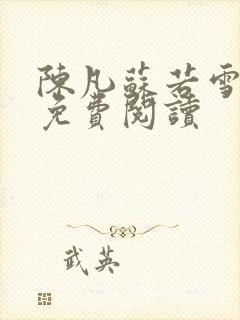 陳凡蘇若雪
免費閱讀
武英